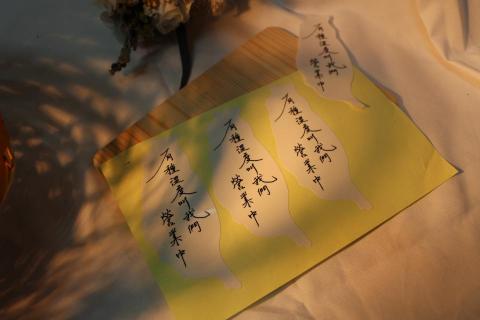 有種溫度叫我們
營業中
有種溫度叫我們
營業中
有種溫度叫我們
營業中
有種溫度叫我們
營業中